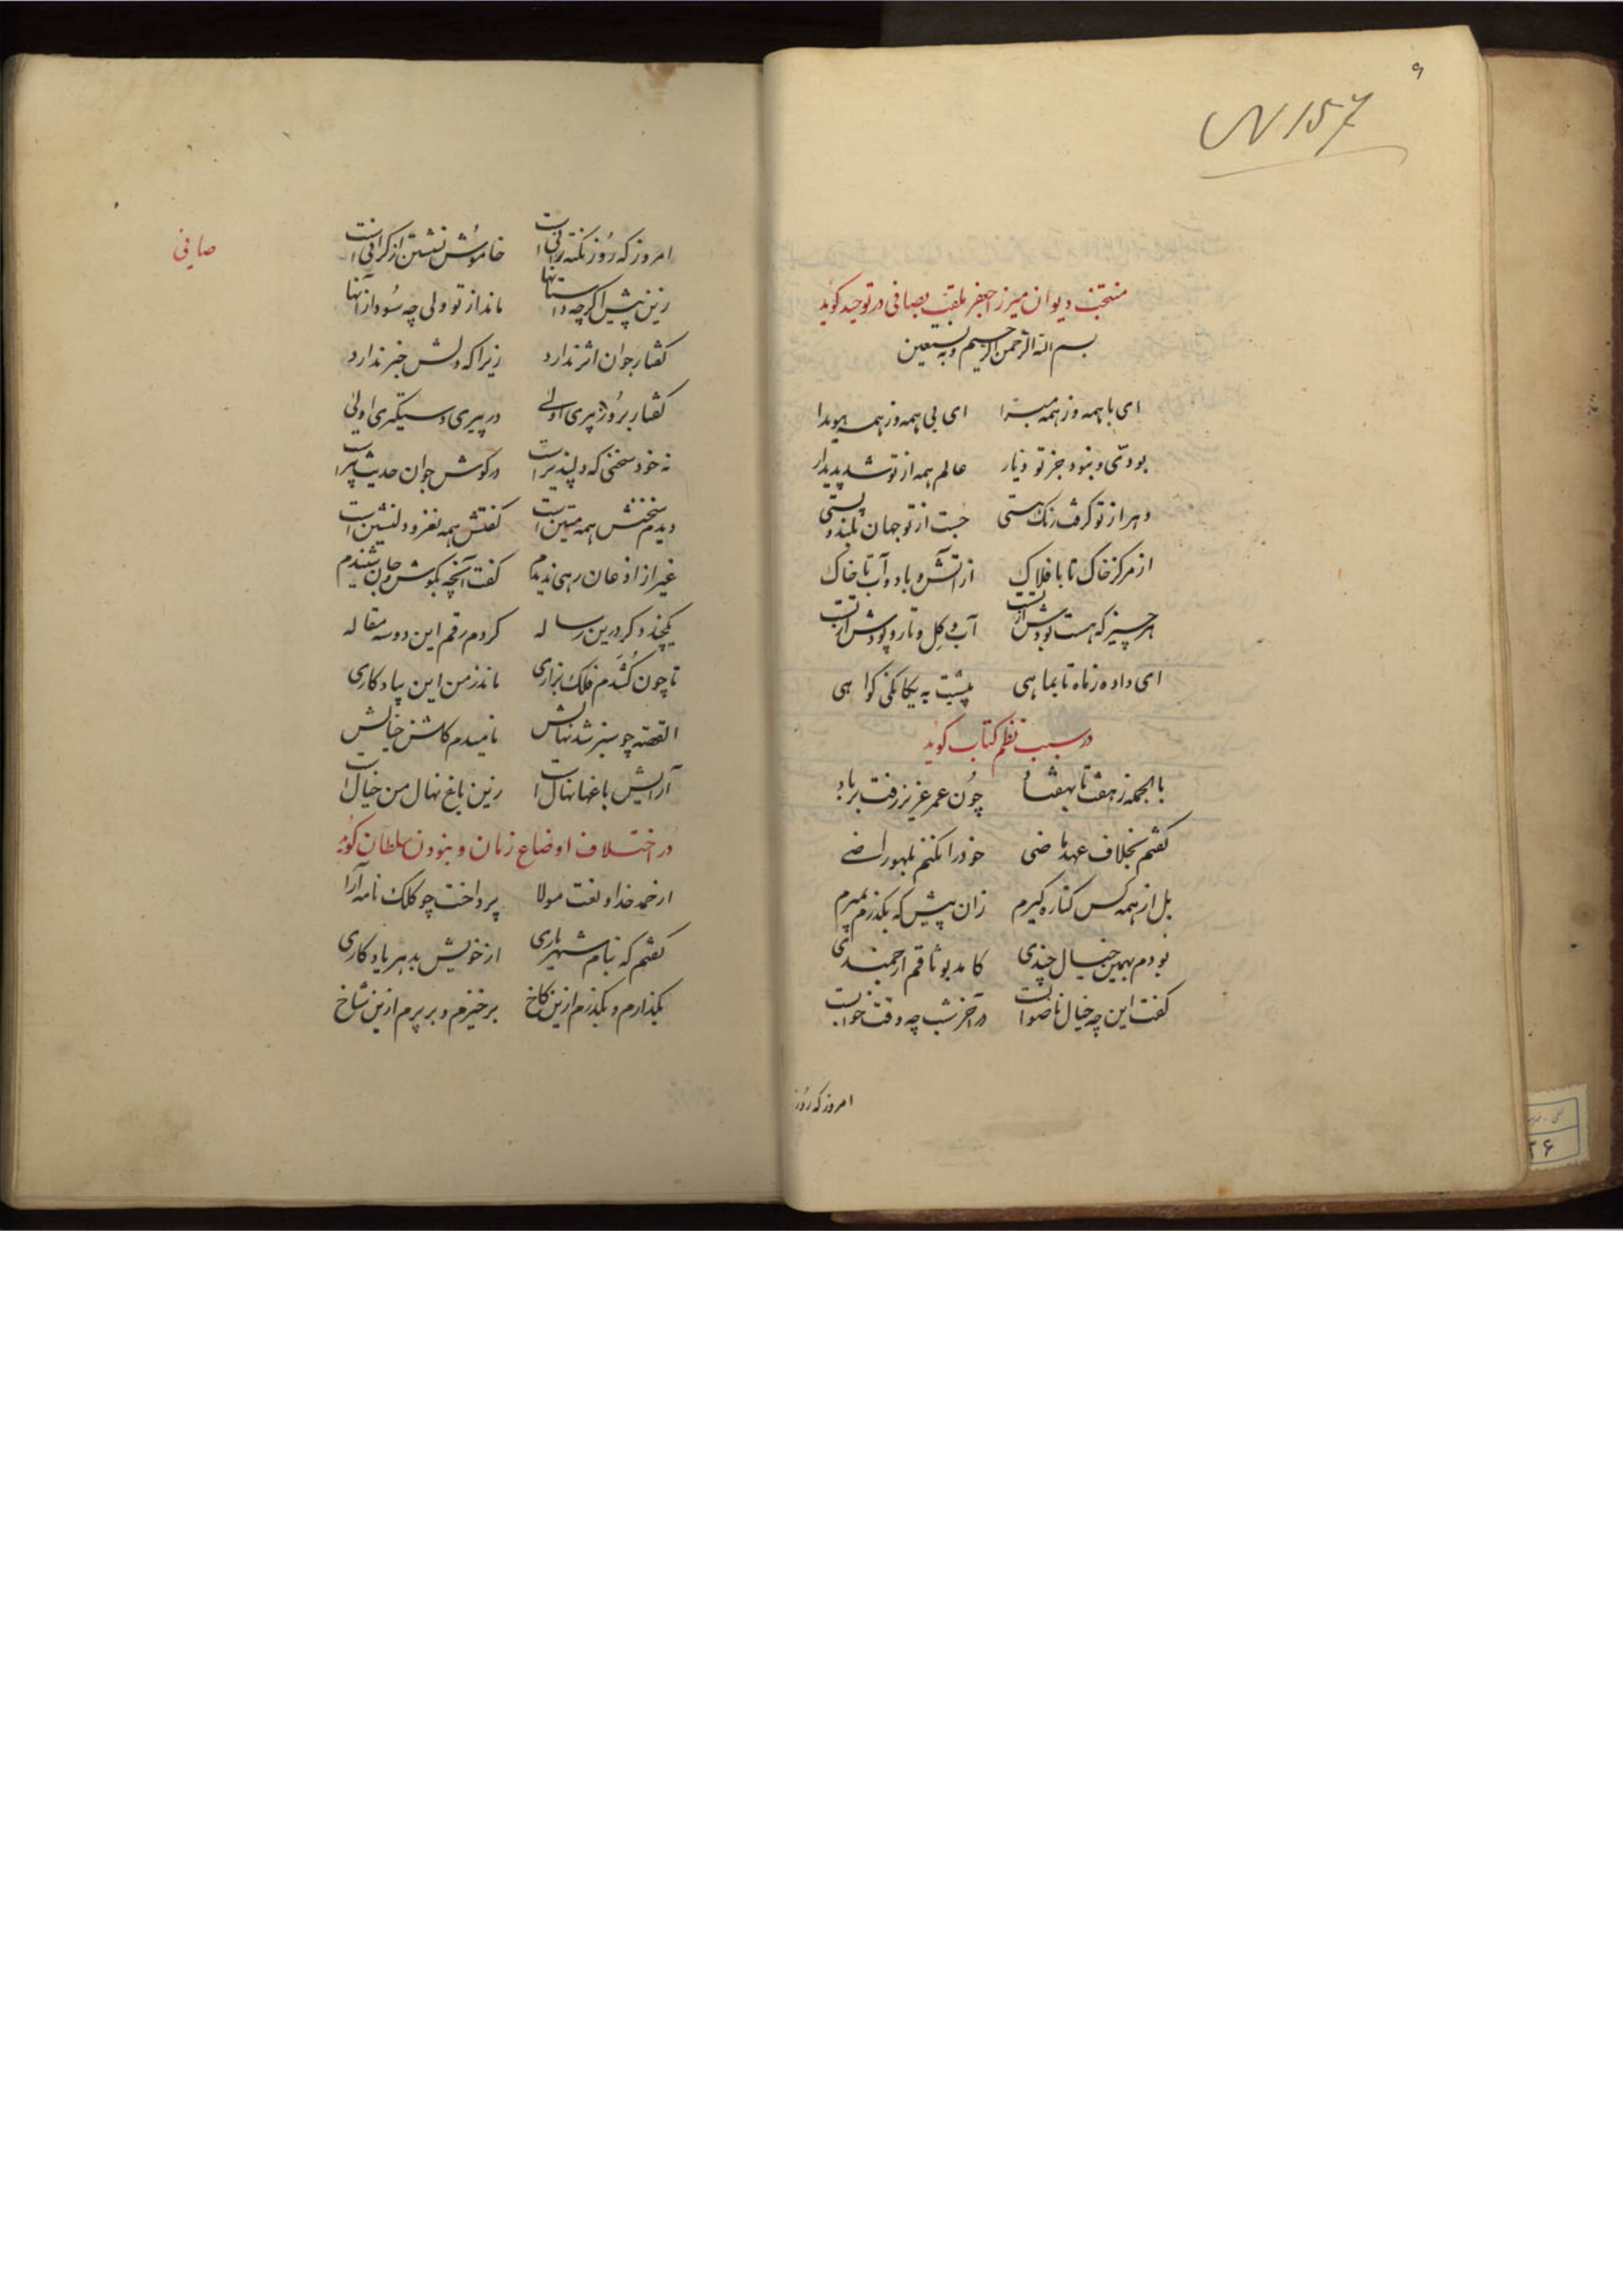 ۹
N 157
منتخب دیوان میرزا جعفر ملقب بصافی در توحید کوید
بسم الله الرحمن الرحیم وبه نستعین
ای با همه وز همه مبرا ای بی همه وز همه هویدا
بودی و نبود جز تو دیار عالم همه از تو شد پدیدار
دهر از تو کرفت رنک هستی جست از تو جهان بلند و پستی
از مرکز خاک تا بافلاک از آتش و باد و آب تا خاک
هر چیز که هست بودش از تست آب و کِل و تار و پودش از تست
ای داده ز ماه تا بماهی پیشت به یکانکی کواهی
در سبب نظم کتاب کوید
بالجمله ز هفت تا بهفتاد چون عمر عزیز رفت بر باد
کفتم بخلاف عهد ماضی خود را نکنم بلهو راضی
بل از همه کس کناره کیرم زان پیش که بکذرم بمیرم
بودم بهمین خیال چندی کامد بوثاقم ارجمندی
کفت این چه خیال ناصوابست در آخر شب چه وقت خوابست
امروز که روز
صافی
امروز که روز نکته رانی است خاموش نشستن از کرانی است
زین پیش اکرچه داستانها ماند از تو ولی چه سود از آنها
کفتار جوان اثر ندارد زیرا که دلش خبر ندارد
کفتار بروز پیری اولی در پیری دستکیری اولی
نه خود سخنی که دلپذیر است در کوش جوان حدیث پیر است
دیدم سخنش همه متین است کفتش همه نغز و دلنشین است
غیر از اذعان رهی ندیدم کفت آنچه بکوش جان شنیدم
یکچند دکر درین رساله کردم رقم این دو سه مقاله
تا چون کُشَدم فلک بزاری ماند ز من این بیادکاری
القصه چو سبز شد نهالش نامیدم کلشن خیالش
آرایش باغها نهال است زین باغ نهال من خیال است
در اختلاف اوضاع زمان و نبودن سلطان کوید
از حمد خدا و نعت مولا پرداخت چو کلک نامه آرا
کفتم که بنام شهریاری از خویش بدهر یادکاری
بکذارم و بکذرم ازین کاخ برخیزم و بر پرم ازین شاخ
۳۶